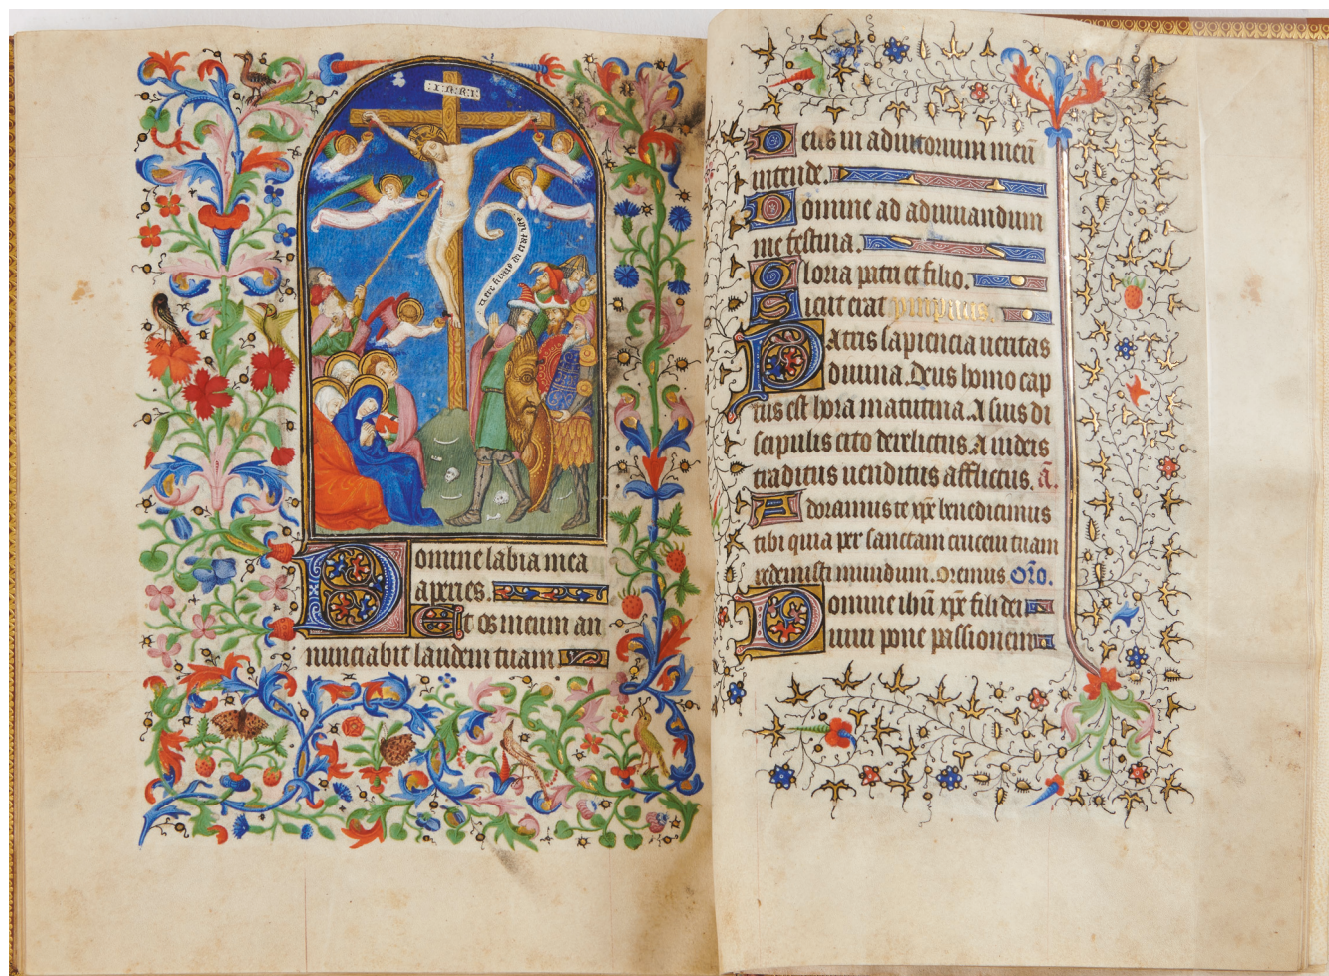 ·I·N·R·I·
Domine labia mea
aperies.
Et os meum an
nunciabit laudem tuam.
Deus in adiutorium meū
intende.
Domine ad adiuuandum
me festina.
Gloria patri et filio.
Sicut erat
Patris sapiencia ueritas
diuina. Deus homo cap
tus est hora matutina. A suis di
scipulis cito derelictus. A iudeis
traditus uenditus afflictus. ā.
Adoramus te xp̄e benedicimus
tibi quia per sanctam crucem tuam
redemisti mundum. oremus Or̄o.
Domine ihū xp̄e fili dei
uiui pone passionem